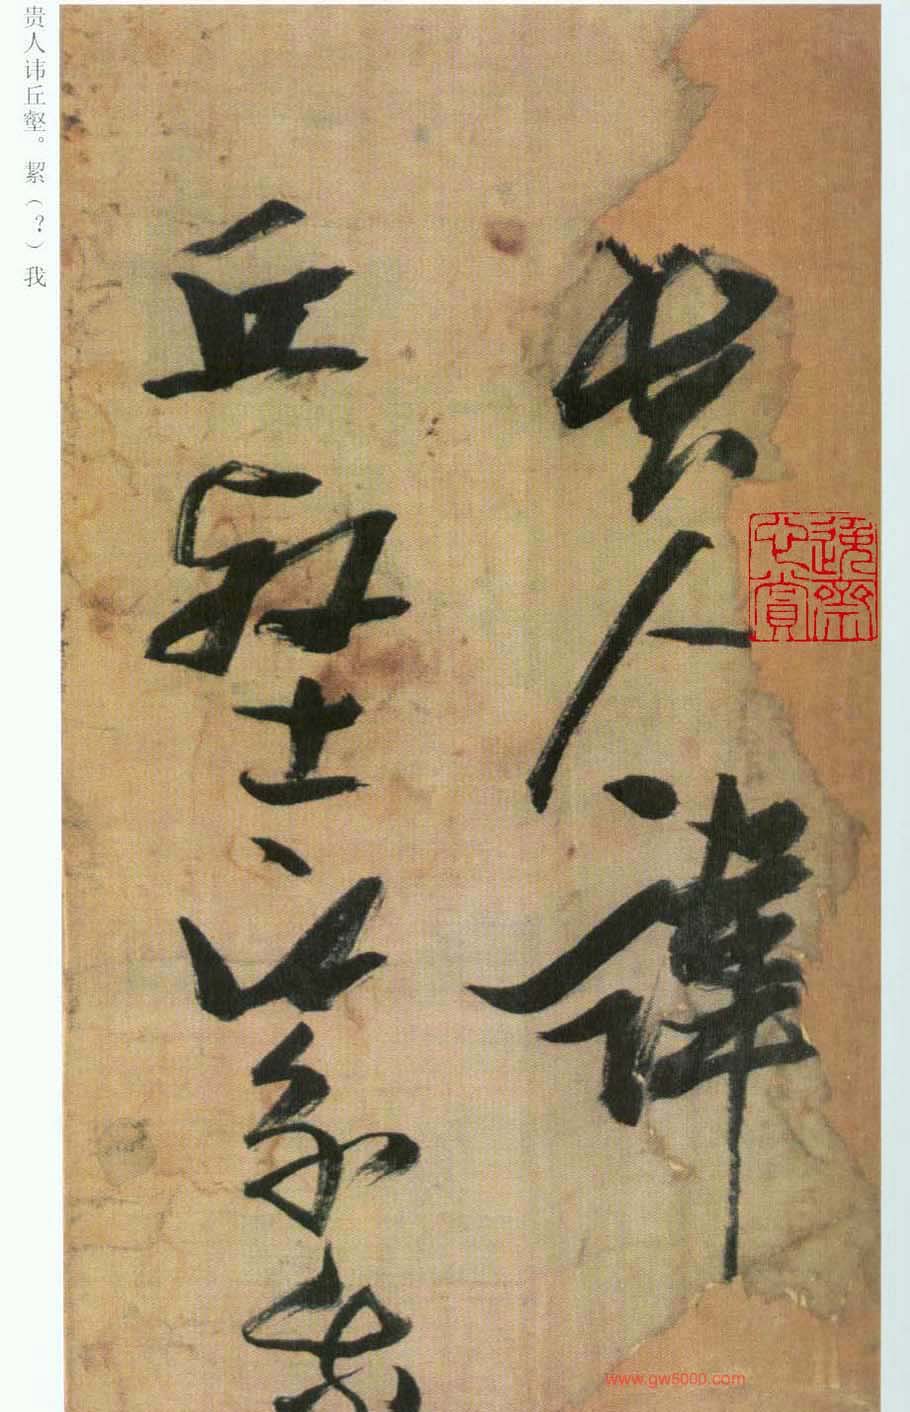 贵人讳丘壑。絜（？）我
貴人諱
丘壑
www.gw5000.com